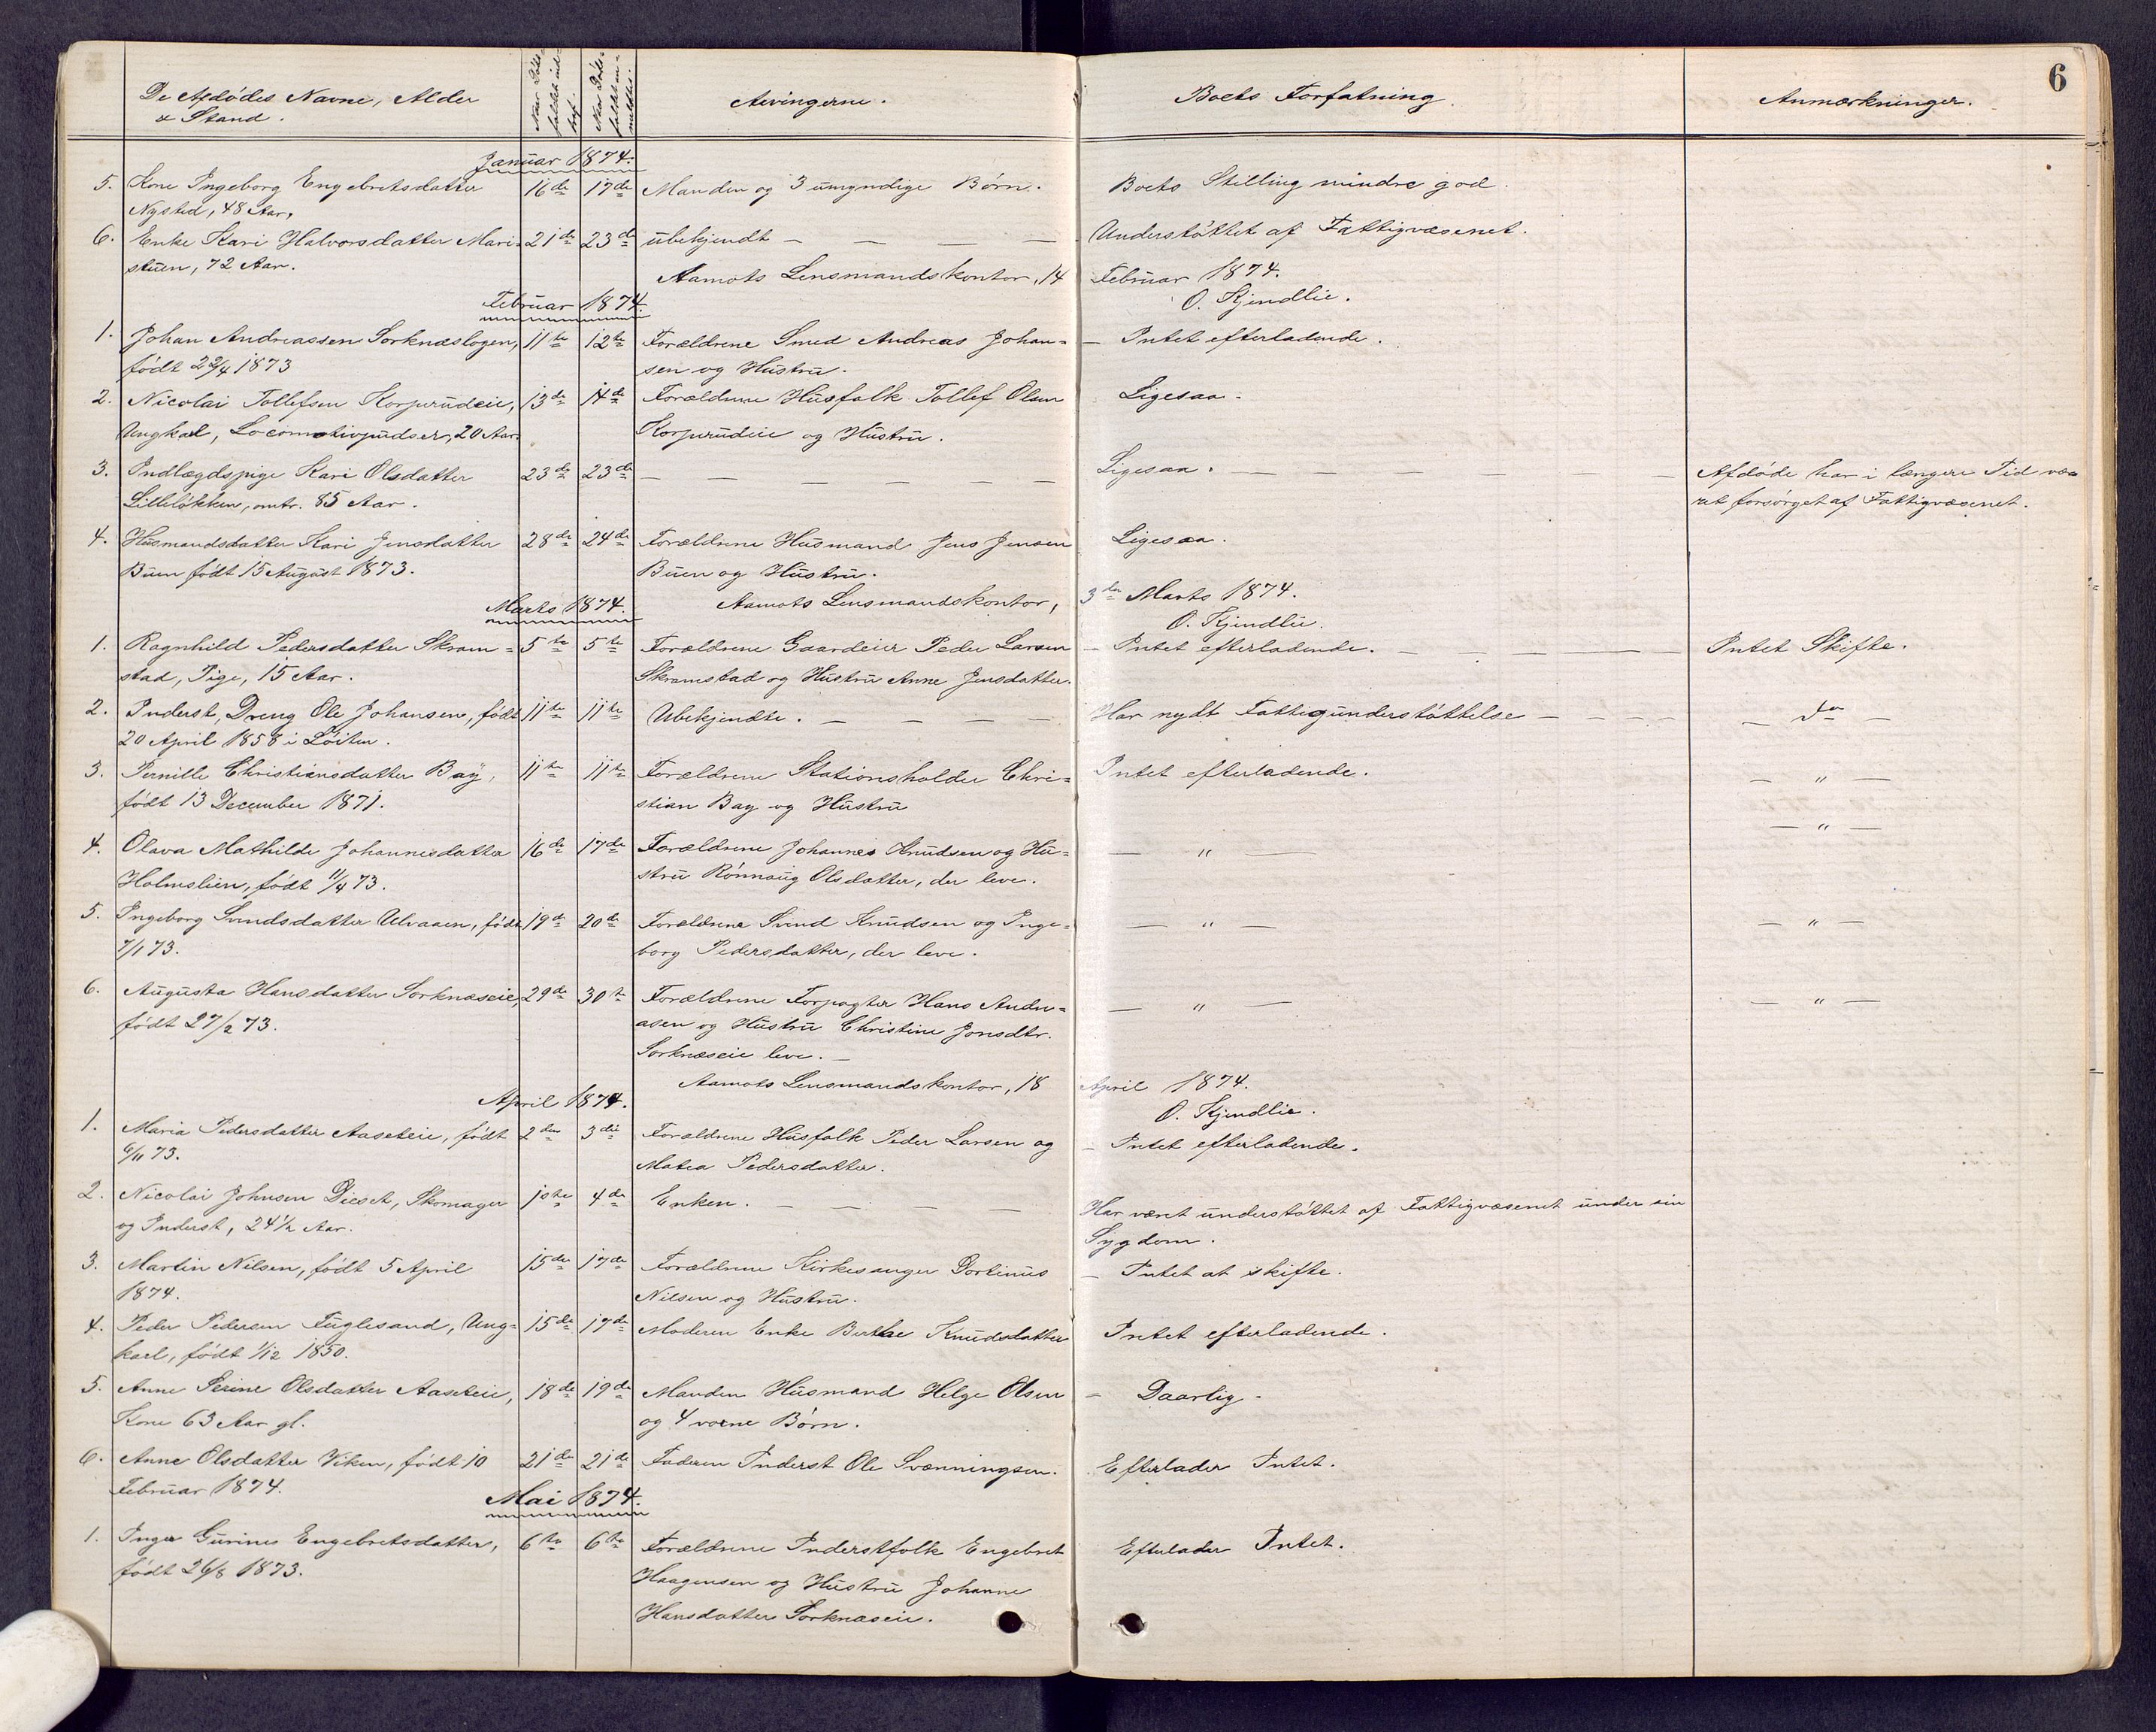 6
De Afdødes Navne, Alder
& Stand.
Naar Døds-
faldet ind-
traf.
Naar Døds-
faldet an-
meldtes.
Arvingerne.
Boets Forfatning.
Anmærkninger.
Januar 1874.
5. Kone Ingeborg Engebretsdatter 16de 17de Manden og 3 umyndige Børn. Boets Stilling mindre god.
Nysted, 48 Aar,
6. Enke Kari Halvorsdatter Mari- 21de 23de ubekjendt — — — — Understøttet af Fattigvæsenet.
stuen, 72 Aar.
Aamots Lensmandskontor, 14 Februar 1874.
O. Kjendlie.
Februar 1874.
1. Johan Andreassen Sorknæslogen, 11te 12te Forældrene Smed Andreas Johan= — Intet efterladende.
født 22/4 1873 sen og Hustru.
2. Nicolai Tollefsen Korperudeie, 13de 14de Forældrene Husfolk Tollef Olsen Ligesaa.
Ungkarl, Locomotivpudser, 20 Aar. Korperudeie og Hustru.
3. Indlægdspige Kari Olsdatter 23de 23de — — — — — — Ligesaa. — — — — — — Afdøde har i længere Tid væ-
Lilleløkken, omtr. 85 Aar. ret forsørget af Fattigvæsenet.
4. Husmandsdatter Kari Jensdatter 28de 24de Forældrene Husmand Jens Jensen Ligesaa.
Buen født 15 August 1873. Buen og Hustru.
Aamots Lensmandskontor, 3die Marts 1874.
O. Kjendlie.
Marts 1874.
1. Ragnhild Pedersdatter Skram= 5te 5te Forældrene Gaardeier Peder Larsen — Intet efterladende. — — — — Intet Skifte.
stad, Pige, 15 Aar. Skramstad og Hustru Anne Jensdatter.
2. Inderst, Dreng Ole Johansen, født 11te 11te Ubekjendte. — — — — Har nydt Fattigunderstøttelse — — — — — do —
20 April 1858 i Løiten.
3. Pernille Christiansdatter Bay, 11te 11te Forældrene Stationsholder Chri= Intet efterladende. — " —
født 13 December 1871. stian Bay og Hustru
4. Olava Mathilde Johannesdatter 16de 17de Forældrene Johannes Knudsen og Hu= — " — — " —
Holmslien, født 11/4 73. stru Rønnaug Olsdatter, der leve.
5. Ingeborg Svendsdatter Ulvaaen, født 19de 20de Forældrene Svend Knudsen og Inge= — " — — " —
7/1 73. borg Pedersdatter, der leve.
6. Augusta Hansdatter Sorknæseie, 29de 30te Forældrene Forpagter Hans Andre= — " — — " —
født 27/2 73. asen og Hustru Christine Jonsdtr.
Sorknæseie leve. —
Aamots Lensmandskontor, 18 April 1874.
O. Kjendlie.
April 1874.
1. Maria Pedersdatter Aaseteie, født 2den 3die Forældrene Husfolk Peder Larsen og — Intet efterladende.
6/11 73. Matea Pedersdatter.
2. Nicolai Johnsen Dieset, Skomager 1ste 4de Enken. — — — — Har været understøttet af Fattigvæsenet under sin
og Inderst, 24½ Aar. Sygdom.
3. Martin Nilsen, født 5 April 15de 17de Forældrene Kirkesanger Dortinus — Intet at skifte.
1874. Nilsen og Hustru.
4. Peder Pedersen Fuglesand, Ung= 15de 17de Moderen Enke Berthe Knudsdatter Intet efterladende.
karl, født 1/12 1850.
5. Anne Serine Olsdatter Aaseteie, 18de 19de Manden Husmand Helge Olsen — Daarlig.
Kone 63 Aar gl. og 4 voxne Børn.
6. Anne Olsdatter Viken, født 10 21de 21de Faderen Inderst Ole Svenningsen. Efterlader Intet.
Februar 1874.
Mai 1874.
1. Inger Gurine Engebretsdatter, 6te 6te Forældrene Inderstfolk Engebret Efterlader Intet.
født 26/8 1873. Haagensen og Hustru Johanne
Hansdatter Sorknæseie.